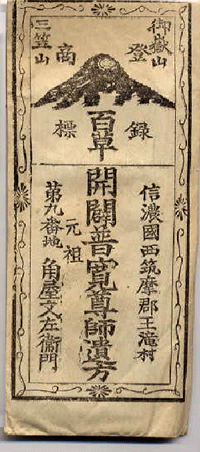 御嶽山
三笠山
登録
商標
百草
信濃國西筑摩郡王滝村
開闢普寛尊師遺方
元祖
第九番地 角屋文左衛門